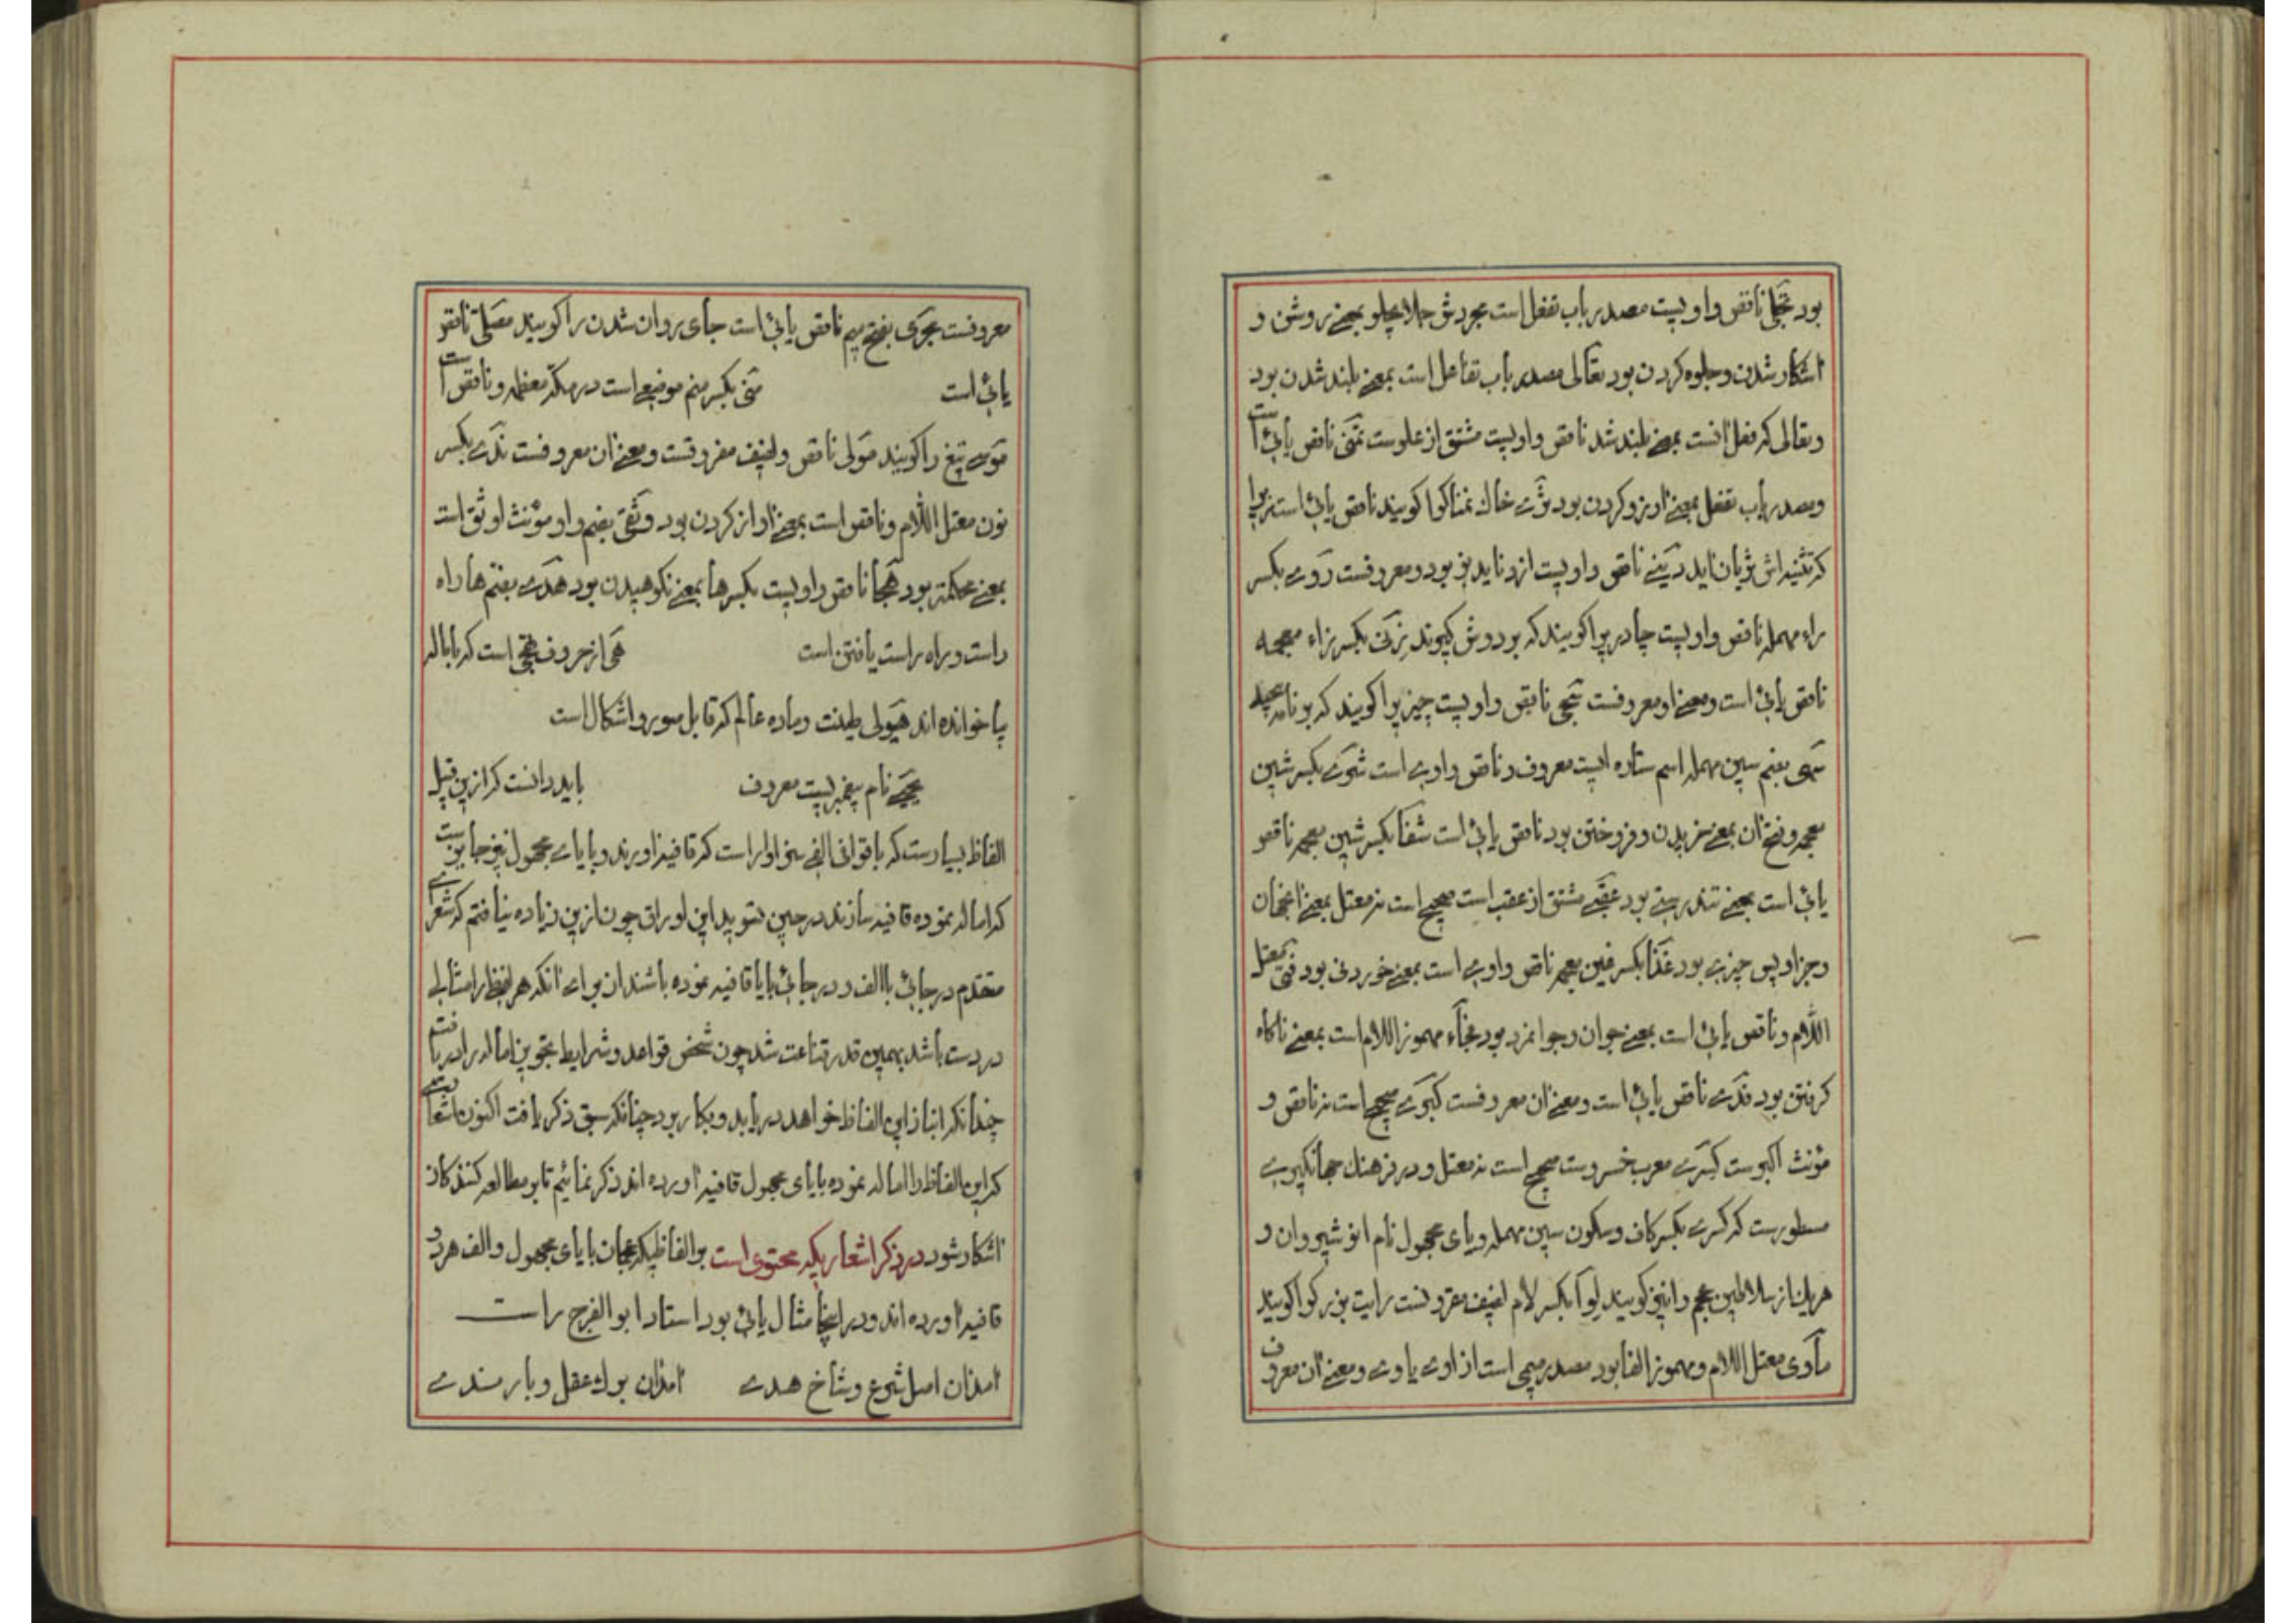 بود تجلی ناقص واویست مصدر باب تفعل است مجردش جلا یجلو بمعنی روشن و
اشکار شدن و جلوه کردن بود تعالی مصدر باب تفاعل است بمعنی بلند شدن بود
و تعالی که فعل انست بمعنی بلند شد ناقص واویست مشتق از علوست تمنی ناقص یائی است
و مصدر باب تفعل بمعنی ارزو کردن بود ثری خاک نمناکرا کویند ناقص یائی است زیرا
که تثنیه اش ثریان اید دنیی ناقص واویست از دنا یدنو بود و معروفست ردی بکسر
راء مهمله ناقص واویست چادریرا کویند که بردوش کیرند زنی بکسر زاء معجمه
ناقص یائی است و معنی او معروفست شجی ناقص واویست چیزیرا کویند که
سهی بضم سین مهمله اسم ستاره ایست معروف و ناقص واوی است شری بکسر شین
معجمه و فتح ان بمعنی خریدن و فروختن بود ناقص یائی است شفا بکسر شین معجمه ناقص
یائی است بمعنی تندرستی بود عقبی مشتق از عقب است صحیح است نه معتل بمعنی انجهان
و جزا و پس چیزی بود غذا بکسر غین معجمه ناقص واوی است بمعنی خوردنی بود فتی معتل
اللام و ناقص یائی است بمعنی جوان و جوانمرد بود فجاء مهموز اللام است بمعنی ناکاه
کرفتن بود فدی ناقص یائی است و معنی ان معروفست کبری صحیح است نه ناقص و
مؤنث اکبرست کسری معرب خسروست صحیح است نه معتل و در فرهنك جهانکیری
مسطورست که کسری بکسر کاف و سکون سین مهمله و یای مجهول نام انوشیروان و
هریك از سلاطین عجم را نیز کویند لوا بکسر لام لفیف مقرونست رایت بزرکرا کویند
مأوی معتل اللام و مهموز الفا بود مصدر میمی است از اوی یاوی و معنی ان معروف
معروفست مجری بفتح میم ناقص یائی است جای روان شدن را کویند مصلی ناقص
یائی است منی بکسر میم موضعی است در مکه معظمه و ناقص است
موسی تیغ را کویند مولی ناقص و لفیف مفروقست و معنی ان معروفست ندی بکسر
نون معتل اللام و ناقص است بمعنی اواز کردن بود وثقی بضم واو مؤنث اوثق است
بمعنی محکمتر بود هجا ناقص واویست بکسر ها بمعنی نکوهیدن بود هدی بضم ها راه
راست و راه راست یافتن است هی از حروف تهجی است که با اماله
یا خوانده اند هیولی طینت و ماده عالم که قابل صور و اشکال است
یحیی نام پیغمبریست معروف باید دانست که ازین قبیل
الفاظ بسیارست که با قوافی الفی سزاوار است که قافیه اورند و با یای مجهول نیز جایزست
که اماله نموده قافیه سازند در حین تسوید این اوراق چون ازین زیاده نیافتم که شعرای
متقدم در جائی باالف و در جائی بایا قافیه نموده باشند از برای انکه هر لفظ را مثالی
در دست باشد بهمین قدر قناعت شد چون شخص قواعد و شرایط تجویز اماله را دریافت
چندانکه از این الفاظ خواهد دریابد و بکار برد چنانکه سبق ذکر یافت اکنون اشعاری
که این الفاظ را اماله نموده با یای مجهول قافیه اورده اند ذکر نمائیم تا بر مطالعه کنندکان
اشکار شود در ذکر اشعاریکه محتوی است بر الفاظیکه عجمان با یای مجهول و الف هر دو
قافیه اورده اند و در اینجا مثال یائی بود استاد ابوالفرج راست
امد ان اصل شرع و شاخ هدی امد ان برك عقل و بار ندی